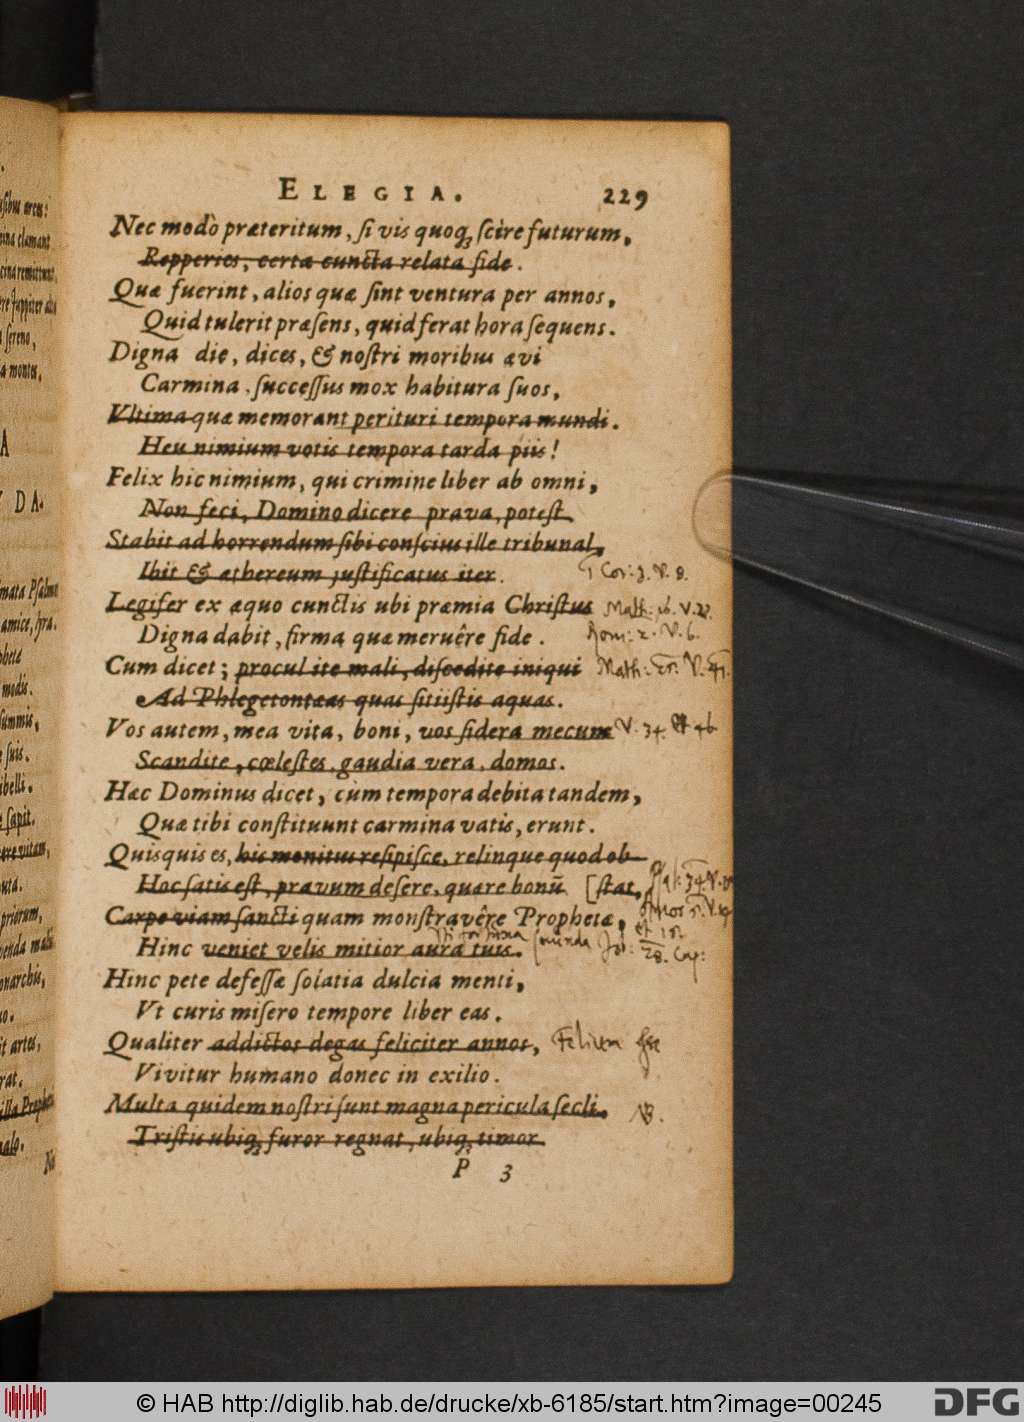 ELEGIA. 229
Nec modò præteritum, ſi vis quoq; ſcire futurum,
Repperies, certa cuncta relata fide.
Quæ fuerint, alios quæ ſint ventura per annos,
Quid tulerit præſens, quid ferat hora ſequens.
Digna die, dices, & noſtri moribus ævi
Carmina ſucceſſus mox habitura ſuos,
Vltima quæ memorant perituri tempora mundi.
Heu nimium votis tempora tarda piis!
Felix hic nimium, qui crimine liber ab omni,
Non feci, Domino dicere prava, poteſt,
Stabit ad horrendum ſibi conſcius ille tribunal,
Ibit & æthereum juſtificatus iter.
1 Cor: 3. V. 8.
Legifer ex æquo cunctis ubi præmia Chriſtus
Math: 16. V. 27.
Digna dabit, firma quæ meruêre fide.
Rom: 2. V. 6.
Cum dicet; procul ite mali, diſcedite iniqui
Math: 25. V. 41.
Ad Phlegetontæas quas ſitiiſtis aquas.
Vos autem, mea vita, boni, vos ſidera mecum
V. 34. et 46
Scandite, cœleſtes, gaudia vera, domos.
Hæc Dominus dicet, cùm tempora debita tandem,
Quæ tibi conſtituunt carmina vatis, erunt.
Quisquis es, his monitus reſipiſce, relinque quod ob-
Hoc ſatis eſt, pravum deſere, quære bonū [ſtat,
Carpe viam ſancti quam monſtravêre Prophetæ,
Hinc veniet velis mitior aura tuis.
Hinc pete defeſſæ ſolatia dulcia menti,
Vt curis miſero tempore liber eas.
Qualiter addictos degas feliciter annos,
Vivitur humano donec in exilio.
Multa quidem noſtri ſunt magna pericula ſecli,
NB.
Triſtis ubiq; furor regnat, ubiq; timor
P 3
© HAB http://diglib.hab.de/drucke/xb-6185/start.htm?image=00245
DFG